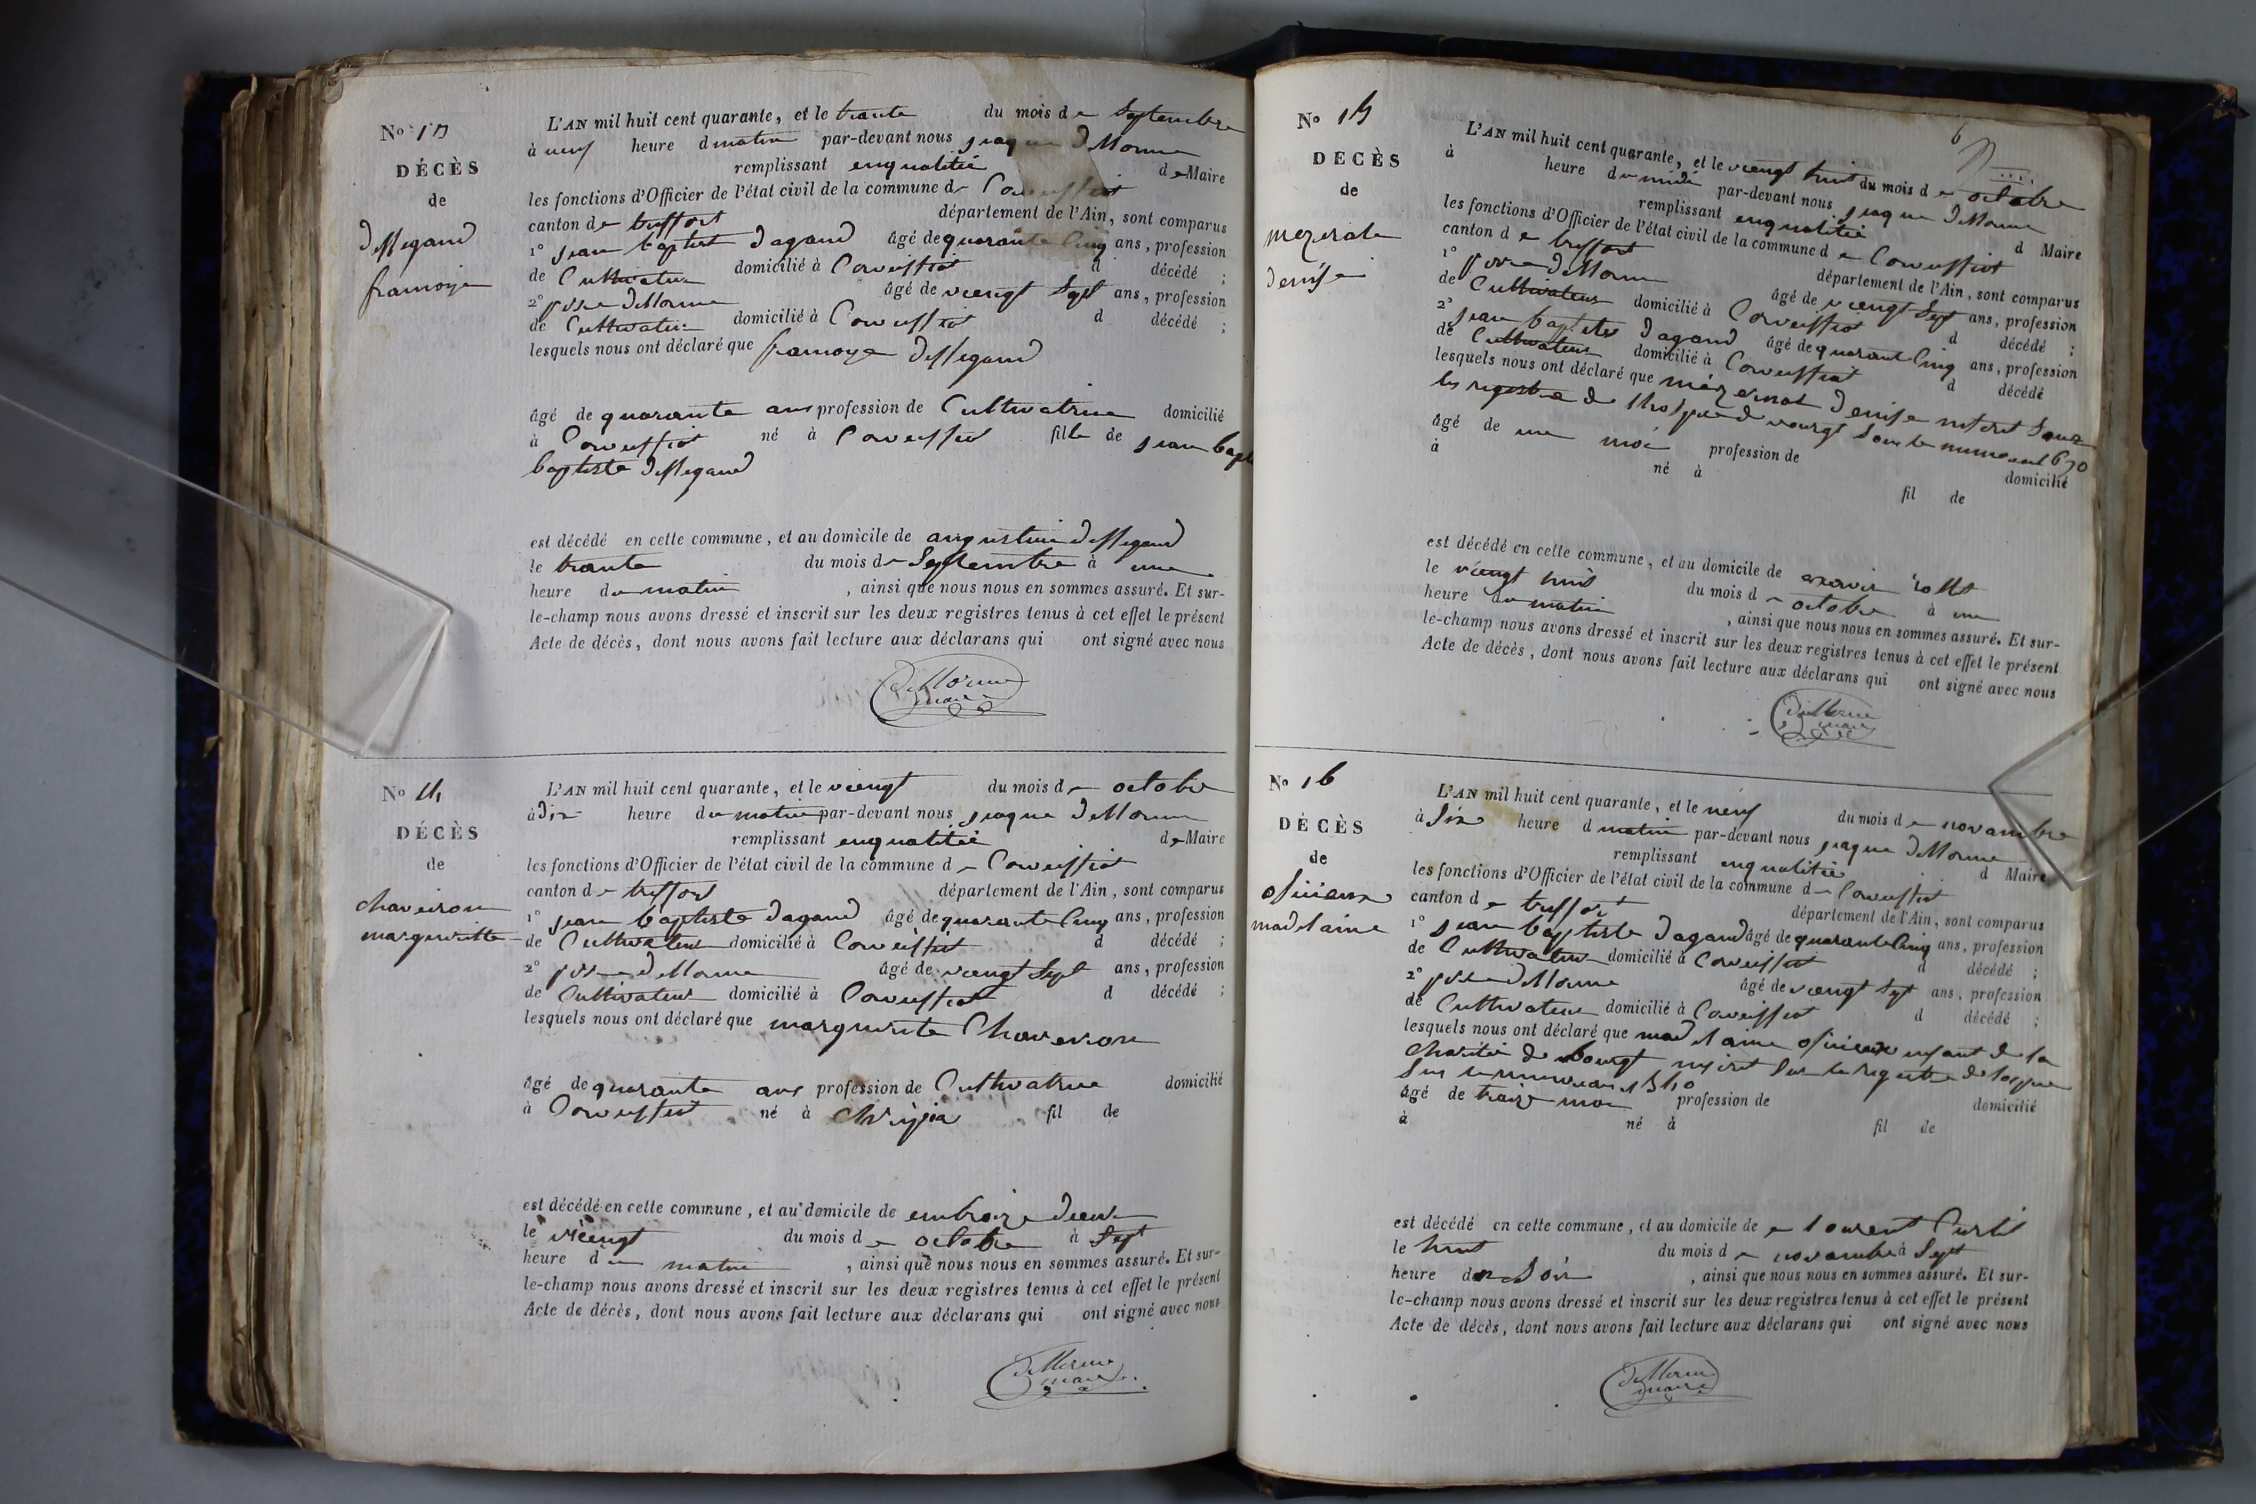 No 13
DÉCÈS
de
dessegaud
framoise
L'AN mil huit cent quarante, et le trante du mois de Septembre
à neuf heure d matin par-devant nous jaque deMorme
remplissant enqualitée de Maire
les fonctions d'Officier de l'état civil de la commune de Corveissiat
canton de treffort département de l'Ain, sont comparus
1° jean baptist dagaud âgé de quarante Cinq ans, profession
de Cultivateur domicilié à Corveissiat d décédé ;
2° deMorme âgé de viengt Sept ans, profession
de Cultivateur domicilié à Corveissiat d décédé ;
lesquels nous ont déclaré que framoise dessegaud
âgé de quarante ans profession de Cultivatrice domicilié
à Corveissiat né à Corveissiat fille de jean bapt
baptiste dessegaud
est décédé en cette commune, et au domicile de augustin dessegaud
le trante du mois de Septembre à une
heure du matin , ainsi que nous nous en sommes assuré. Et sur-
le-champ nous avons dressé et inscrit sur les deux registres tenus à cet effet le présent
Acte de décès, dont nous avons fait lecture aux déclarans qui ont signé avec nous
deMorme
maire
No 14
DÉCÈS
de
chaveiron
margueritte
L'AN mil huit cent quarante, et le viengt du mois de octobre
à dix heure du matin par-devant nous jaque deMorme
remplissant enqualitée de Maire
les fonctions d'Officier de l'état civil de la commune de Corveissiat
canton de treffort département de l'Ain, sont comparus
1° jean baptiste dagaud âgé de quarante Cinq ans, profession
de Cultivateur domicilié à Corveissiat d décédé ;
2° deMorme âgé de viengt Sept ans, profession
de Cultivateur domicilié à Corveissiat d décédé ;
lesquels nous ont déclaré que marguerite Chaveron
âgé de quarante ans profession de Cultivatrice domicilié
à Corveissiat né à fil de
est décédé en cette commune, et au domicile de
le viengt du mois de octobre à Sept
heure du matin , ainsi que nous nous en sommes assuré. Et sur-
le-champ nous avons dressé et inscrit sur les deux registres tenus à cet effet le présent
Acte de décès, dont nous avons fait lecture aux déclarans qui ont signé avec nous
deMorme
maire
6
No 15
DECÈS
de
mezerate
denise
L'AN mil huit cent quarante, et le viengt huit du mois de octobre
à heure de midi par-devant nous jaque deMorme
remplissant enqualitée d Maire
les fonctions d'Officier de l'état civil de la commune de Corveissiat
canton de treffort département de l'Ain, sont comparus
1° deMorme âgé de viengt Sept ans, profession
de Cultivateur domicilié à Corveissiat d décédé ;
2° jean baptiste dagaud âgé de quarant Cinq ans, profession
de Cultivateur domicilié à Corveissiat d décédé
lesquels nous ont déclaré que denise
les registre de de bourgt Sous le 670
âgé de une moi profession de domicilié
à né à fil de
est décédé en cette commune, et au domicile de
le viengt huit du mois de octobre à une
heure du matin , ainsi que nous nous en sommes assuré. Et sur-
le-champ nous avons dressé et inscrit sur les deux registres tenus à cet effet le présent
Acte de décès, dont nous avons fait lecture aux déclarans qui ont signé avec nous
deMorme
maire
No 16
DÉCÈS
de
madelaine
L'AN mil huit cent quarante, et le neuf du mois de novambre
à Six heure d matin par-devant nous jaque deMorme
remplissant enqualitée d Maire
les fonctions d'Officier de l'état civil de la commune de Corveissiat
canton de treffort département de l'Ain, sont comparus
1° jean baptiste dagaud âgé de quarante Cinq ans, profession
de Cultivateur domicilié à Corveissiat d décédé ;
2° deMorme âgé de viengt Sept ans, profession
de Cultivateur domicilié à Corveissiat d décédé ;
lesquels nous ont déclaré que madelaine enfant de la
charitée de bourgt Sur le registre de
Sur le
âgé de traize moi profession de domicilié
à né à fil de
est décédé en cette commune, et au domicile de lourent Curti
le huit du mois de novambre à Sept
heure du Soir , ainsi que nous nous en sommes assuré. Et sur-
le-champ nous avons dressé et inscrit sur les deux registres tenus à cet effet le présent
Acte de décès, dont nous avons fait lecture aux déclarans qui ont signé avec nous
deMorme
maire